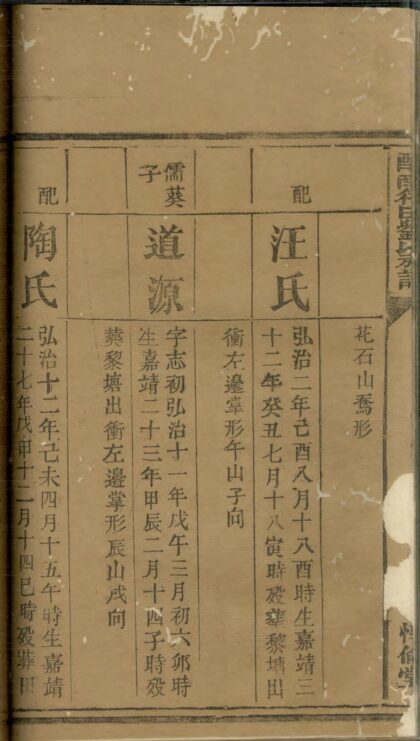 花石山喬形
配
汪氏
弘治二年己酉八月十八酉時生嘉靖三
十二年癸丑七月十八寅時歿葬黎塘出
衝左邊掌形午山子向
儒葵
子
道源
字志初弘治十一年戊午三月初六卯時
生嘉靖二十三年甲辰二月十四子時歿
葬黎塘出衝左邊掌形辰山戌向
配
陶氏
弘治十二年己未四月十五午時生嘉靖
二十七年戊申十二月十四巳時歿葬田